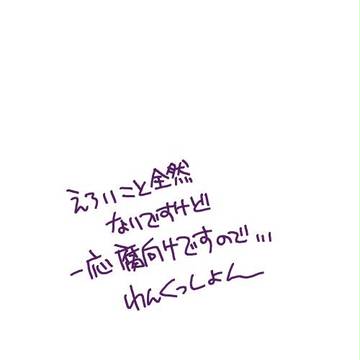 えろいこと全然
ないですけど
一応腐向けですので...
わんくっしょん